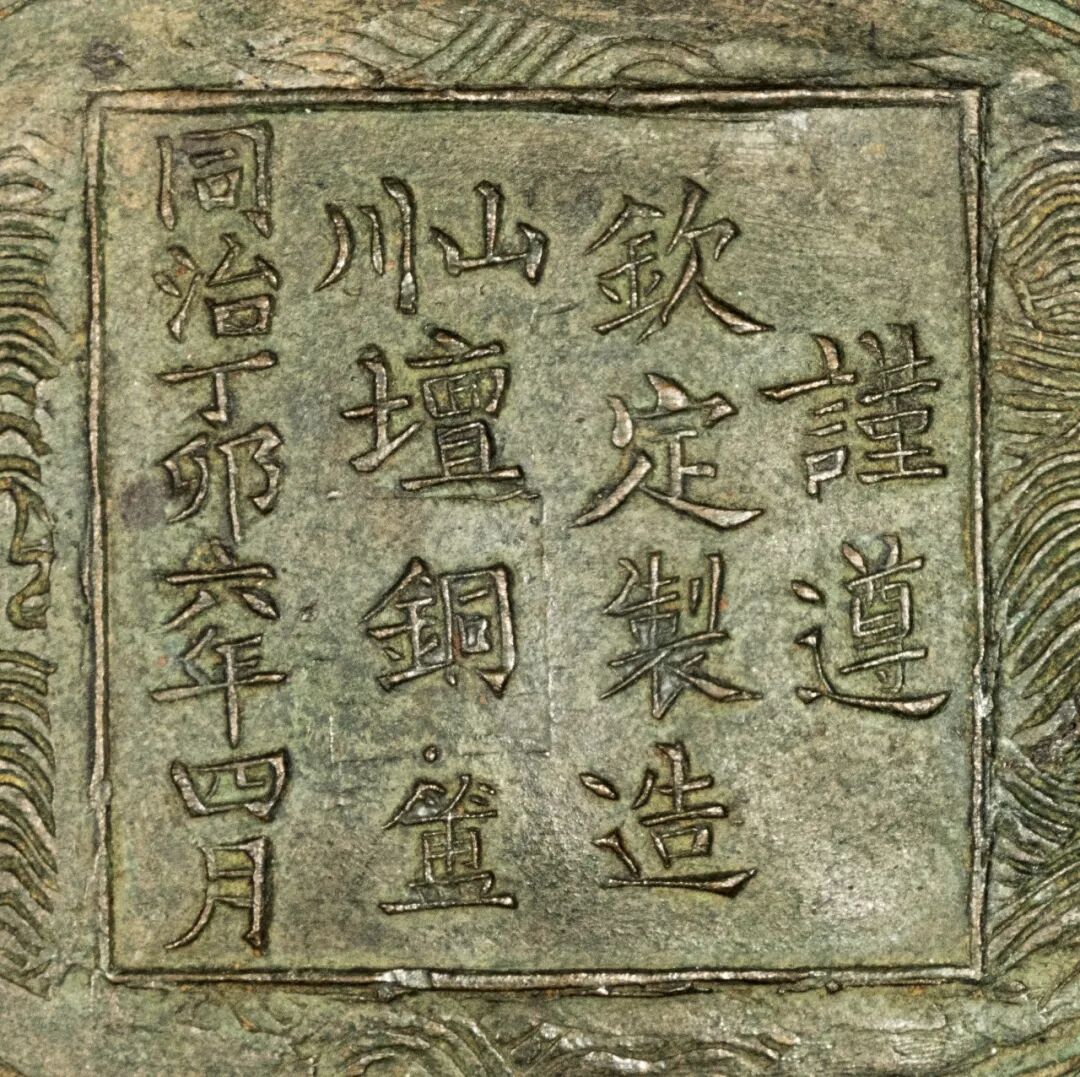 謹遵
欽定製造
山川壇銅
同治丁卯六年四月